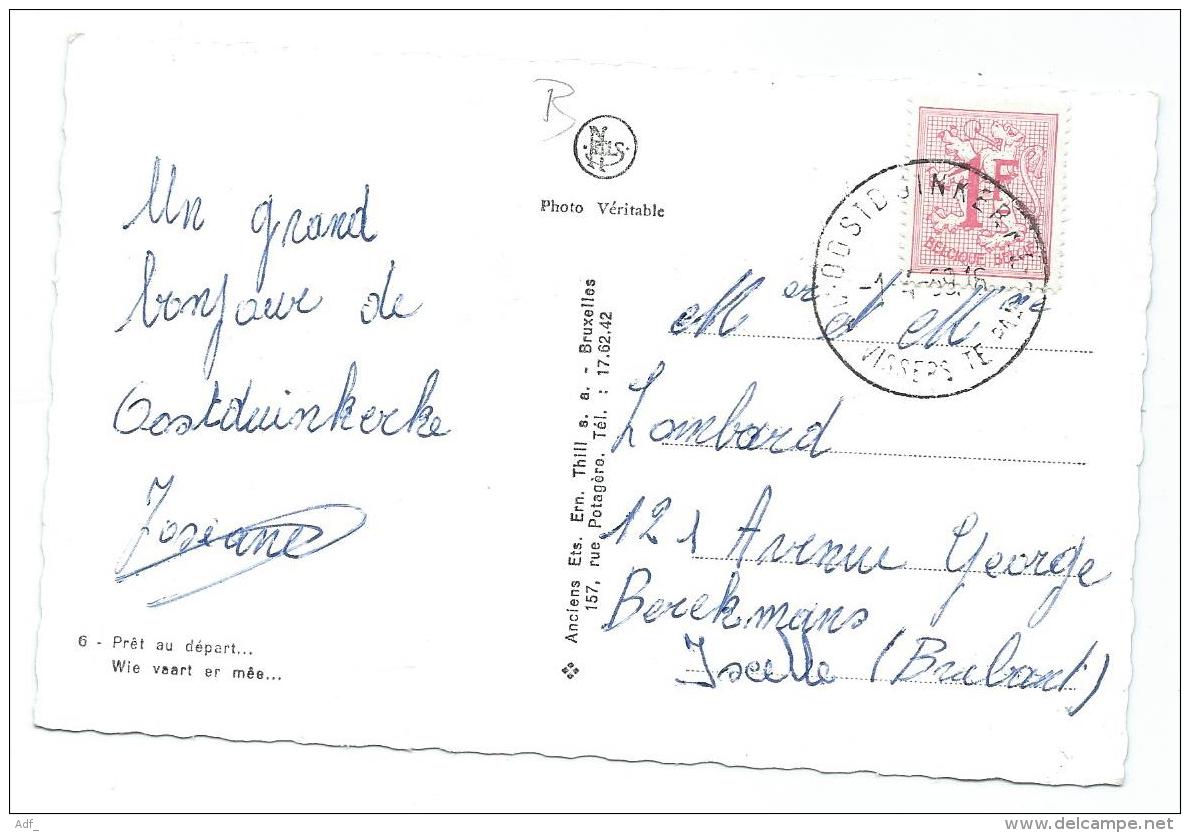 B
NELS
Photo Véritable
1F
BELGIQUE BELGIE
OOSTDUINKERKE
VISSERS TE PAARD
Un grand
bonjour de
Oostduinkerke
Josiane
Mr et Mme
Lombard
121 Avenue George
Berekmans
(Brabant)
Anciens Ets. Ern. Thill s. a. - Bruxelles
157, rue Potagère. Tél. : 17.62.42
6 - Prêt au départ...
Wie vaart er mêe...
Adf_
www.delcampe.net